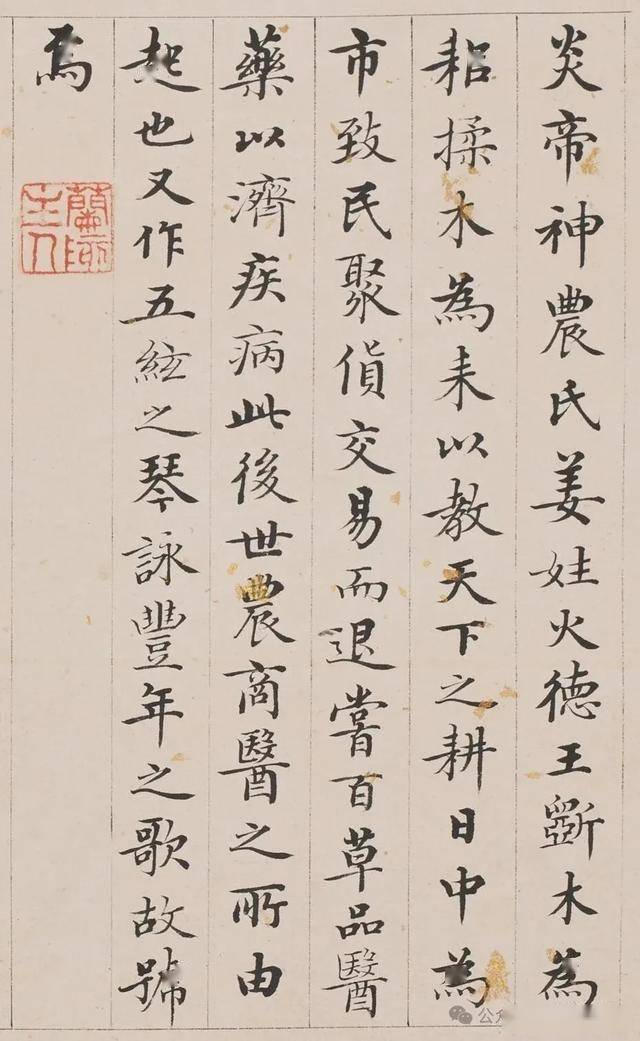 炎帝神農氏姜姓火徳王斵木為
耜揉木為耒以教天下之耕日中為
市致民聚貨交易而退嘗百草品醫
藥以濟疾病此後世農商醫之所由
起也又作五絃之琴詠豐年之歌故號
焉
蘭主人
公